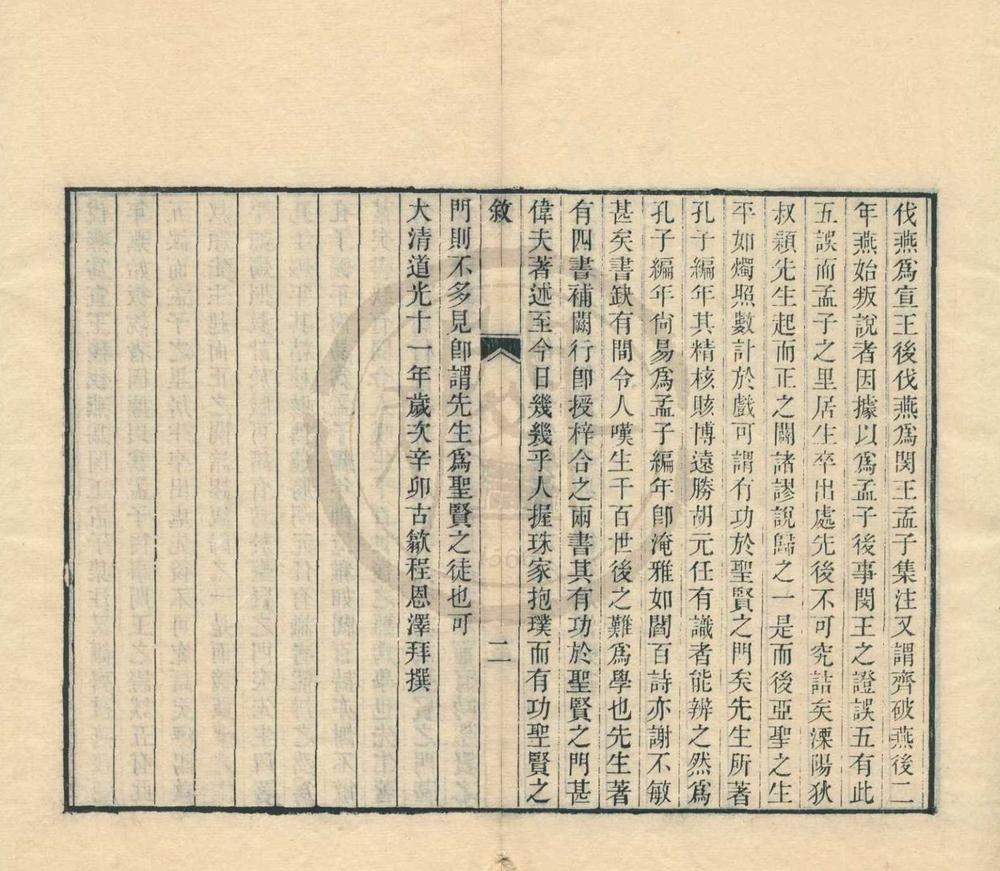 伐燕爲宣王後伐燕爲閔王孟子集注又謂齊破燕後二
年燕始叛說者因據以爲孟子後事閔王之證誤五有此
五誤而孟子之里居生卒出處先後不可究詰矣溧陽狄
叔穎先生起而正之闢諸謬說歸之一是而後亞聖之生
平如燭照數計於戲可謂有功於聖賢之門矣先生所著
孔子編年其精核賅博遠勝胡元任有識者能辨之然爲
孔子編年尙易爲孟子編年卽淹雅如閻百詩亦謝不敏
甚矣書缺有間令人嘆生千百世後之難爲學也先生著
有四書補闕行卽授梓合之兩書其有功於聖賢之門甚
偉夫著述至今日幾幾乎人握珠家抱璞而有功聖賢之
敘
二
門則不多見卽謂先生爲聖賢之徒也可
大清道光十一年歲次辛卯古歙程恩澤拜撰